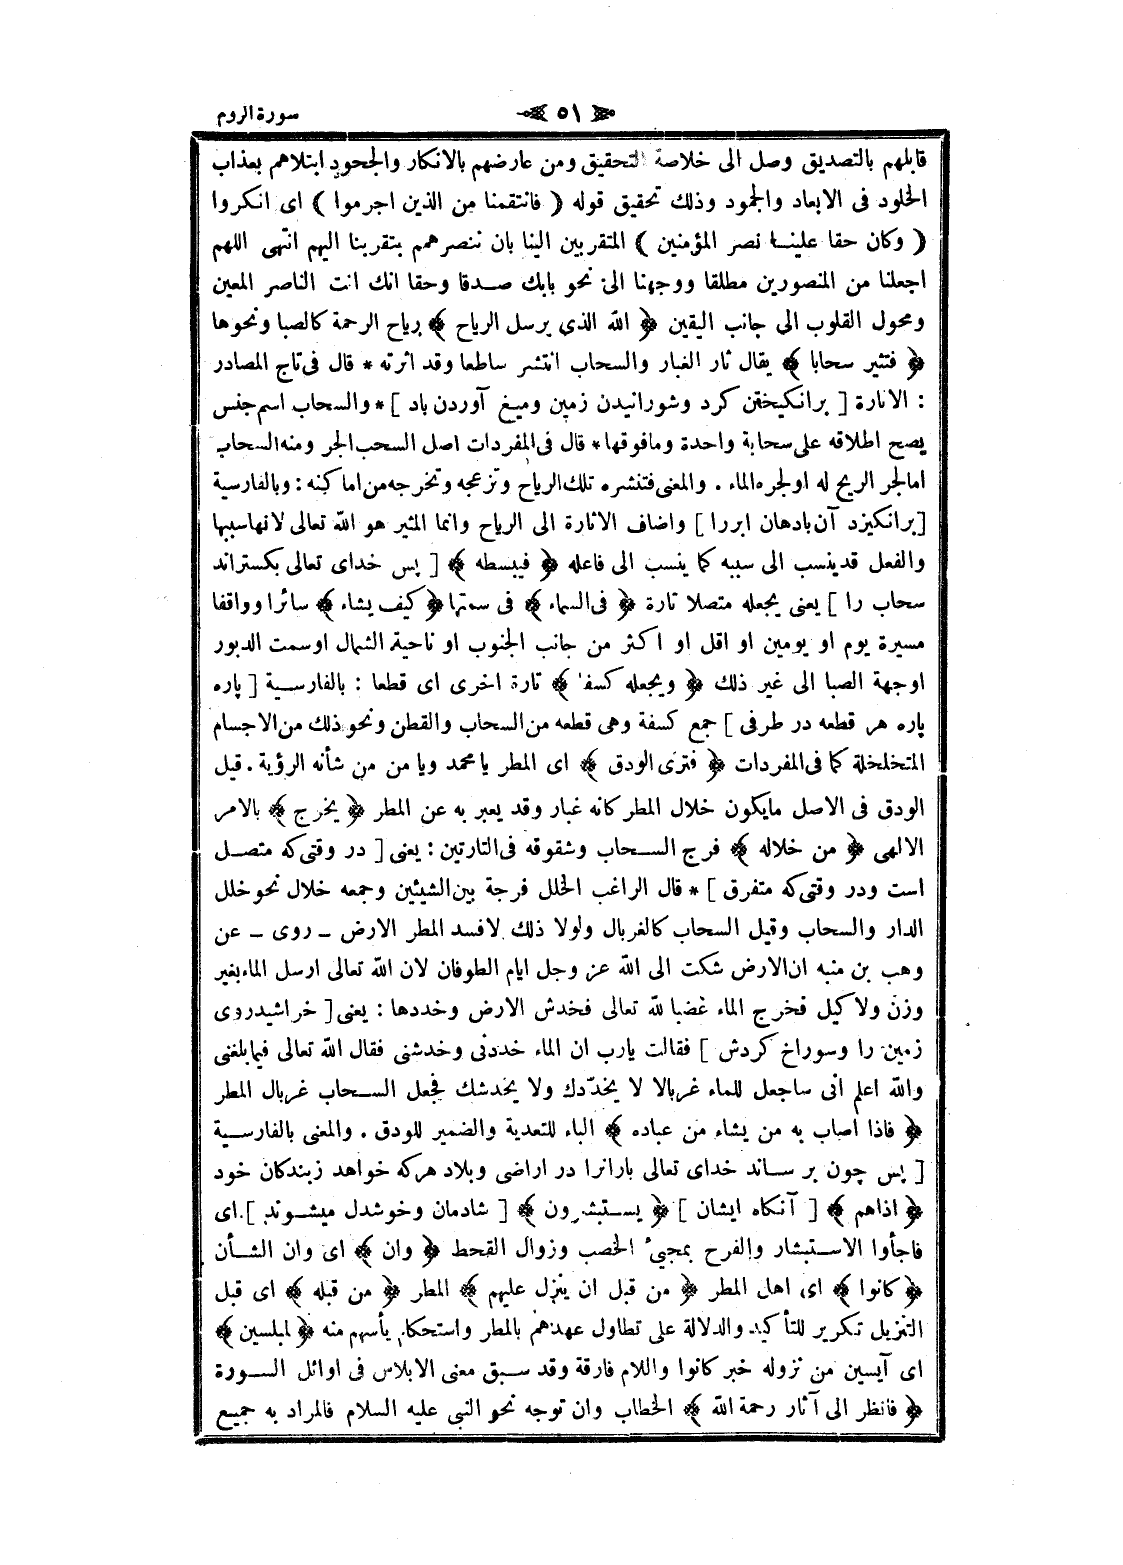 سورة الروم
٥١
قابلهم بالتصديق وصل الى خلاصة التحقيق ومن عارضهم بالانكار والجحود ابتلاهم بعذاب
الخلود فى الابعاد والجمود وذلك تحقيق قوله ( فانتقمنا من الذين اجرموا ) اى انكروا
( وكان حقا علينا نصر المؤمنين ) المتقربين الينا بان ننصرهم بتقربنا اليهم انتهى اللهم
اجعلنا من المنصورين مطلقا ووجهنا الى نحو بابك صدقا وحقا انك انت الناصر المعين
ومحول القلوب الى جانب اليقين ﴿ الله الذى يرسل الرياح ﴾ رياح الرحمة كالصبا ونحوها
﴿ فتثير سحابا ﴾ يقال ثار الغبار والسحاب انتشر ساطعا وقد اثرته * قال فى تاج المصادر
: الاثارة [ برانكيختن كرد وشورانيدن زمين وميغ آوردن باد ] * والسحاب اسم جنس
يصح اطلاقه على سحابة واحدة ومافوقها * قال فى المفردات اصل السحب الجر ومنه السحاب
امالجر الريح له اولجره الماء . والمعنى فتنشره تلك الرياح وتزعجه وتخرجه من اماكنه : وبالفارسية
[ برانكيزد آن بادهان ابررا ] واضاف الاثارة الى الرياح وانما المثير هو الله تعالى لانهاسببها
والفعل قدينسب الى سببه كما ينسب الى فاعله ﴿ فيبسطه ﴾ [ پس خداى تعالى بكستراند
سحاب را ] يعنى يجعله متصلا تارة ﴿ فى السماء ﴾ فى سمتها ﴿ كيف يشاء ﴾ سائرا وواقفا
مسيرة يوم او يومين او اقل او اكثر من جانب الجنوب او ناحية الشمال اوسمت الدبور
اوجهة الصبا الى غير ذلك ﴿ ويجعله كسفا ﴾ تارة اخرى اى قطعا : بالفارسية [ پاره
پاره هر قطعه در طرفى ] جمع كسفة وهى قطعه من السحاب والقطن ونحو ذلك من الاجسام
المتخلخلة كما فى المفردات ﴿ فترى الودق ﴾ اى المطر يا محمد ويا من من شأنه الرؤية . قيل
الودق فى الاصل مايكون خلال المطر كانه غبار وقد يعبر به عن المطر ﴿ يخرج ﴾ بالامر
الالهى ﴿ من خلاله ﴾ فرج السحاب وشقوقه فى التارتين : يعنى [ در وقتى كه متصل
است ودر وقتى كه متفرق ] * قال الراغب الخلل فرجة بين الشيئين وجمعه خلال نحو خلل
الدار والسحاب وقيل السحاب كالغربال ولولا ذلك لافسد المطر الارض ـ روى ـ عن
وهب بن منبه ان الارض شكت الى الله عز وجل ايام الطوفان لان الله تعالى ارسل الماء بغير
وزن ولا كيل فخرج الماء غضبا لله تعالى فخدش الارض وخددها : يعنى [ خراشيدروى
زمين را وسوراخ كردش ] فقالت يارب ان الماء خددنى وخدشنى فقال الله تعالى فيما بلغنى
والله اعلم انى ساجعل للماء غربالا لا يخدّدك ولا يخدشك فجعل السحاب غربال المطر
﴿ فاذا اصاب به من يشاء من عباده ﴾ الباء للتعدية والضمير للودق . والمعنى بالفارسية
[ پس چون بر ساند خداى تعالى بارانرا در اراضى وبلاد هركه خواهد زبندكان خود
﴿ اذاهم ﴾ [ آنكاه ايشان ] ﴿ يستبشرون ﴾ [ شادمان وخوشدل ميشوند ] . اى
فاجأوا الاستبشار والفرح بمجيئ الخصب وزوال القحط ﴿ وان ﴾ اى وان الشأن
﴿ كانوا ﴾ اى اهل المطر ﴿ من قبل ان ينزل عليهم ﴾ المطر ﴿ من قبله ﴾ اى قبل
التنزيل تكرير للتأكيد والدلالة على تطاول عهدهم بالمطر واستحكام يأسهم منه ﴿ لمبلسين ﴾
اى آيسين من نزوله خبر كانوا واللام فارقة وقد سبق معنى الابلاس فى اوائل السورة
﴿ فانظر الى آثار رحمة الله ﴾ الخطاب وان توجه نحو النبى عليه السلام فالمراد به جميع